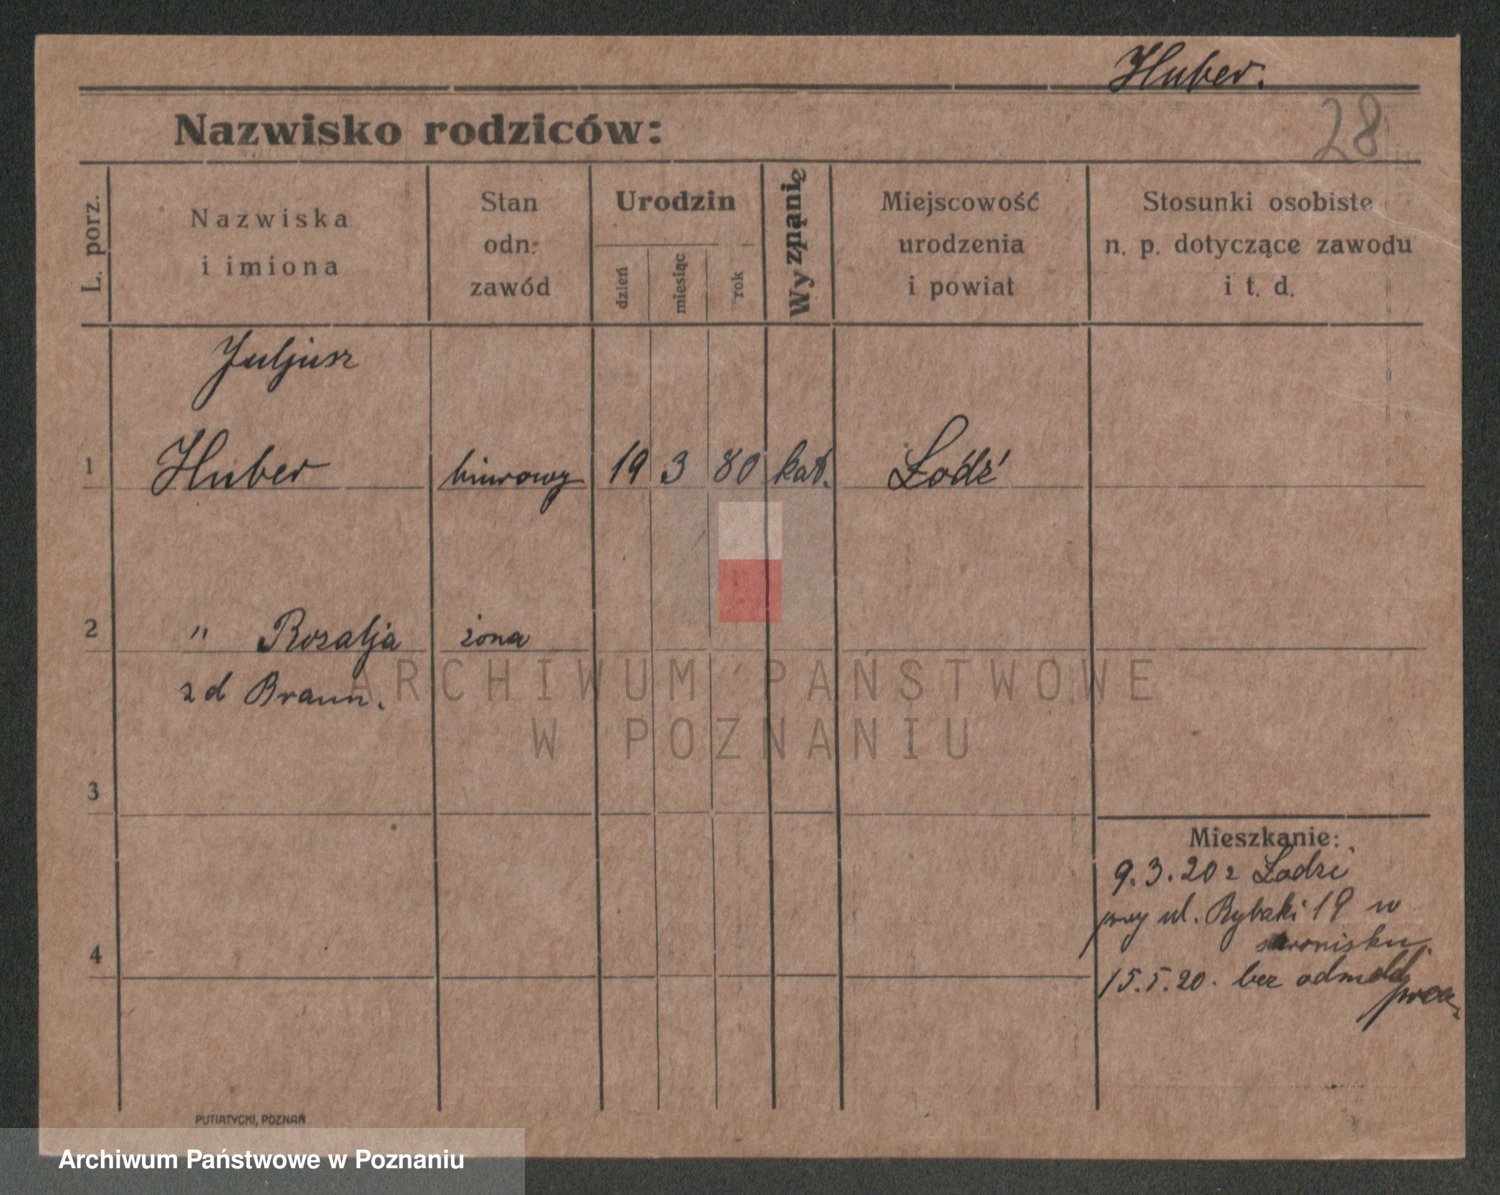 Huber.
28
Nazwisko rodziców:
L. porz.
Nazwiska
i imiona
Stan
odn.
zawód
Urodzin
dzień
miesiąc
rok
Wyznanię
Miejscowość
urodzenia
i powiat
Stosunki osobiste
n. p. dotyczące zawodu
i t. d.
Juljusz
1 Huber biurowy 19 3 80 kat. Łódź
2 " Rozalja żona
z d Braun.
ARCHIWUM PAŃSTWOWE
W POZNANIU
3
Mieszkanie:
9.3.20 z Łodzi
przy ul. Rybaki 19 w
schronisku.
4
15.5.20. bez odmeld.
PUTIATYCKI, POZNAŃ
Archiwum Państwowe w Poznaniu